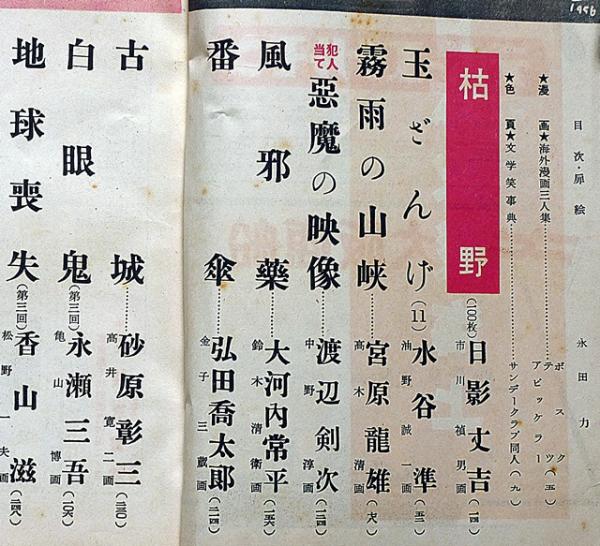 1956
目次・扉絵 永田力
★漫画★海外漫画三人集
ボスク
テツ
アビッケラー(五)
★色頁★文学笑事典 サンデークラブ同人(九)
枯野(100枚) 日影丈吉(一四)
市川禎男画
玉ざんげ(11) 水谷準(五二)
油野誠一画
霧雨の山峡 宮原龍雄(七八)
髙木清画
犯人当て 悪魔の映像 渡辺剣次(一三四)
中野淳画
風邪薬 大河内常平(一五六)
鈴木清衛画
番傘 弘田喬太郎(二一四)
金子三蔵画
古城 砂原彰三(二三〇)
髙井寛二画
白眼鬼(第三回) 永瀬三吾(一〇六)
亀山博画
地球喪失(第三回) 香山滋(二四八)
松野一夫画